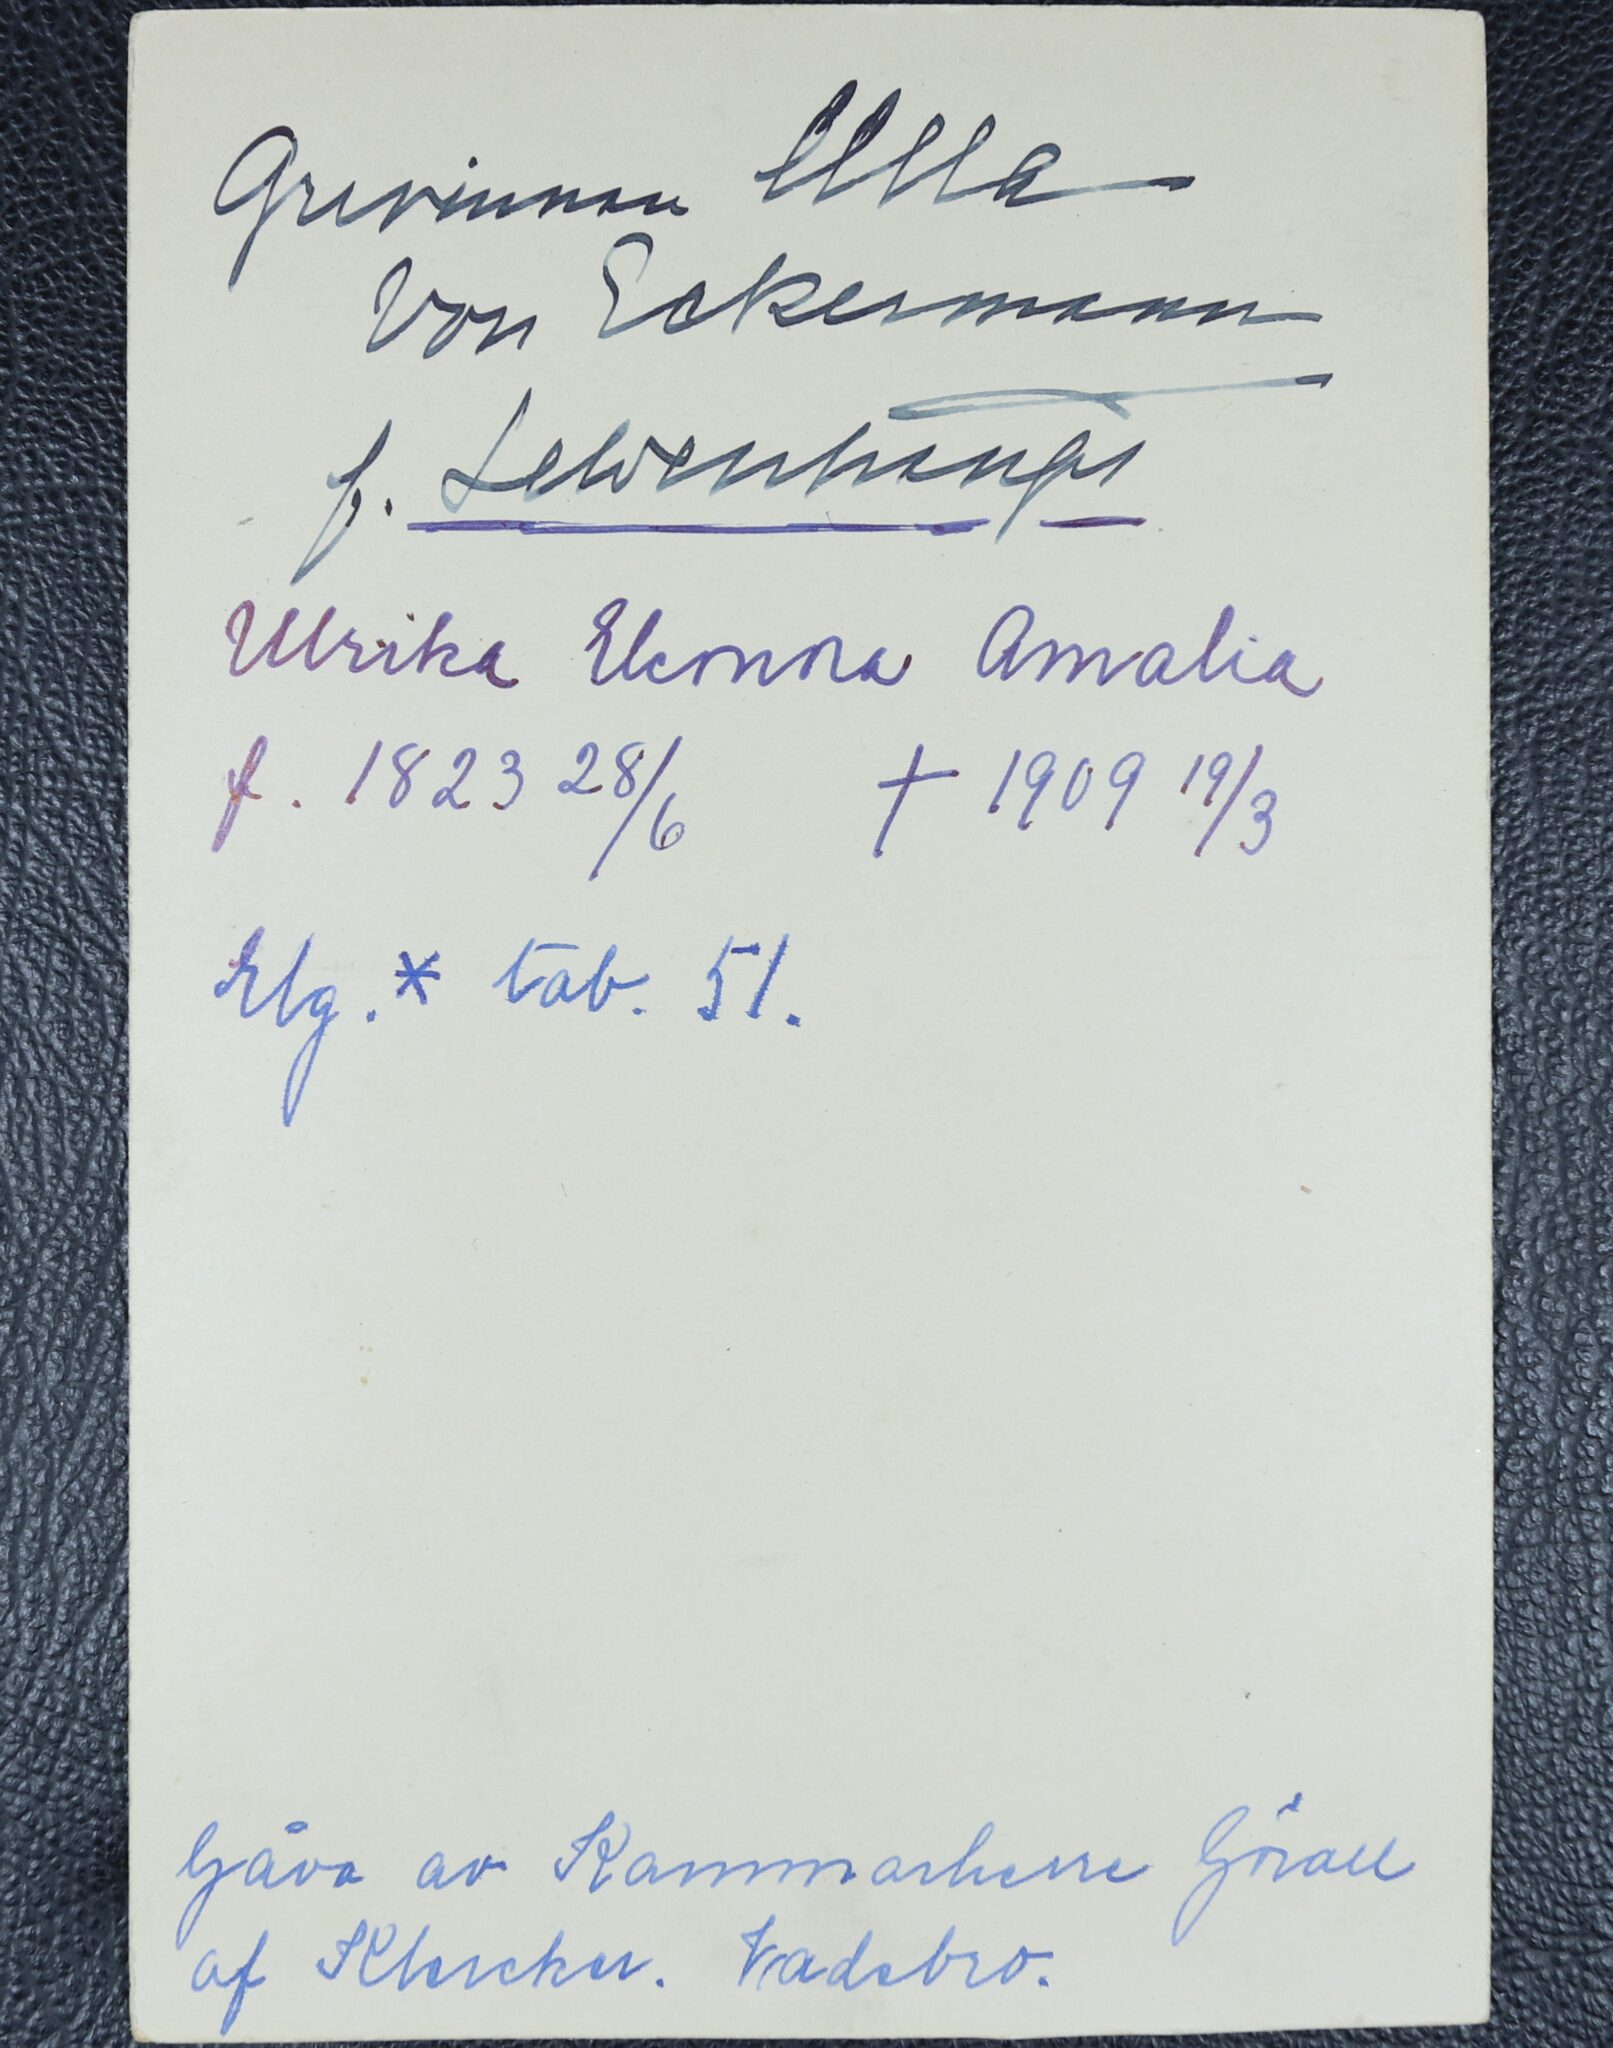 Grevinnan Ulla
von Eckermann
f. Lewenhaupt
Ulrika Eleonora Amalia
f. 1823 28/6 † 1909 19/3
Elg.* tab. 51.
Gåva av Kammarherre Göran
af Klercker. Vadsbro.